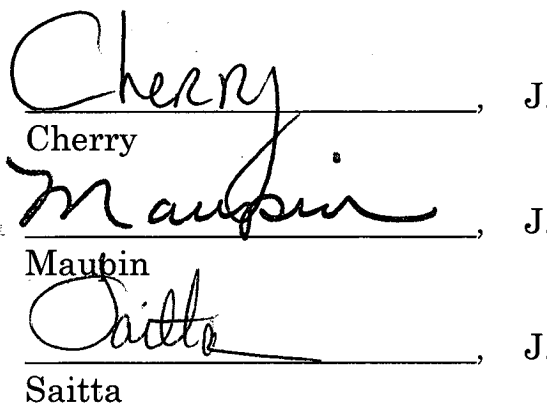 Cherry, J.
Cherry
Maupin, J.
Maupin
Saitta, J.
Saitta